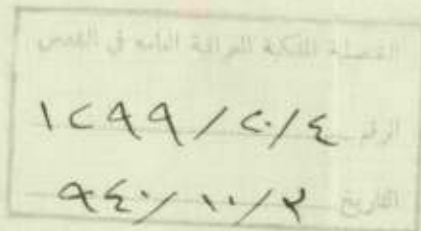 القنصلية الملكية العراقية العامة في القدس
الرقم ١٢٩٩/٢٠/٤
التاريخ ٩٤٠/١٠/٣